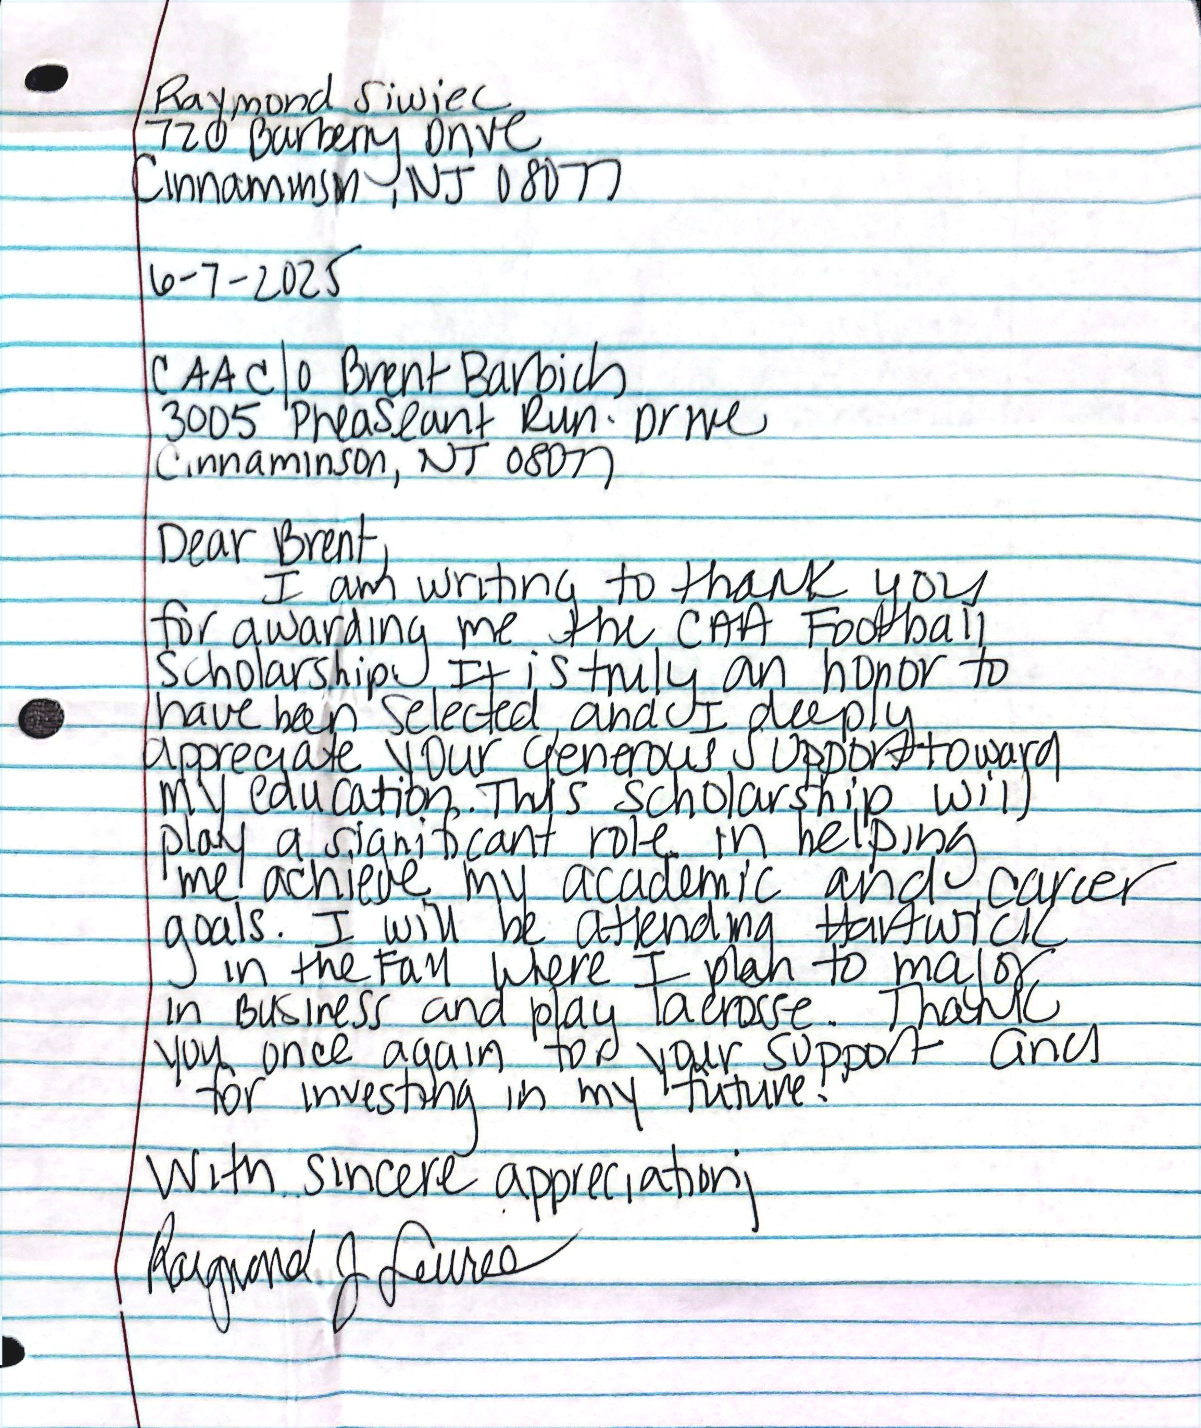 Raymond Siwiec
720 Barberry Drive
Cinnaminson, NJ 08077
6-7-2025
CAA c/o Brent Barbich
3005 Pheaseant Run. Drive
Cinnaminson, NJ 08077
Dear Brent,
I am writing to thank you
for awarding me the CAA Football
Scholarship. It is truly an honor to
have been selected and I deeply
appreciate your generous support toward
my education. This scholarship will
play a significant role in helping
me achieve my academic and career
goals. I will be attending Hartwick
in the Fall where I plan to major
in Business and play lacrosse. Thank
you once again for your support and
for investing in my future!
With sincere appreciation,
Raymond J Siwiec